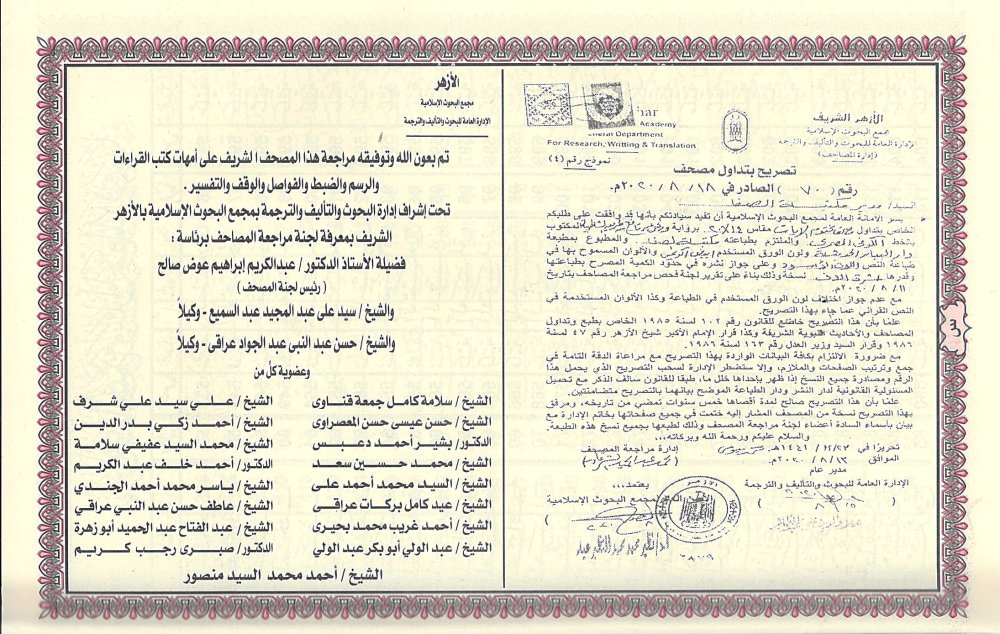 الأزهر الشريف
مجمع البحوث الإسلامية
الإدارة العامة للبحوث والتأليف والترجمة
(إدارة المصاحف)
Academy
General Department
For Research, Writting & Translation
نموذج رقم (٤)
تصريح بتداول مصحف
رقم ( ٧٠ ) الصادر في ١٨ / ٨ / ٢٠٢٠م.
السيد / مدير مكتبة الصفا
يسر الأمانة العامة لمجمع البحوث الإسلامية أن تفيد سيادتكم بأنها قد وافقت على طلبكم
الخاص بتداول مقاس ١٤×٢٠ برواية المكتوب
بخط والملتزم بطباعته والمطبوع بمطبعة
ولون الورق المستخدم والألوان المسموح بها في
طباعة النص وعلى جواز نشره في حدود الكمية المصرح بطباعتها
وقدرها نسخة وذلك بناءً على تقرير لجنة فحص مراجعة المصاحف بتاريخ
١١ / ٨ / ٢٠٢٠م.
مع عدم جواز اختلاف لون الورق المستخدم في الطباعة وكذا الألوان المستخدمة في
النص القرآني عما جاء بهذا التصريح.
علمًا بأن هذا التصريح خاضع للقانون رقم ١٠٢ لسنة ١٩٨٥ الخاص بطبع وتداول
المصاحف والأحاديث النبوية الشريفة وكذا قرار الإمام الأكبر شيخ الأزهر رقم ٤٧ لسنة
١٩٨٦ وقرار السيد وزير العدل رقم ١٦٣ لسنة ١٩٨٦.
مع ضرورة الالتزام بكافة البيانات الواردة بهذا التصريح مع مراعاة الدقة التامة في
جمع وترتيب الصفحات والملازم، وإلا ستضطر الإدارة لسحب التصريح الذي يحمل هذا
الرقم ومصادرة جميع النسخ إذا ظهر بإحداها خلل ما، طبقا للقانون سالف الذكر مع تحميل
المسئولية القانونية لدار النشر ودار الطباعة الموضح بيانهما بالتصريح متضامنتين.
علمًا بأن هذا التصريح صالح لمدة أقصاها خمس سنوات تمضي من تاريخه، ومرفق
بهذا التصريح نسخة من المصحف المشار إليه ختمت في جميع صفحاتها بخاتم الإدارة مع
بيان بأسماء السادة أعضاء لجنة مراجعة المصحف وذلك لطبعها بجميع نسخ هذه الطبعة.
والسلام عليكم ورحمة الله وبركاته،،،
تحريرًا في ٢٣/ ١٢/ ١٤٤١هـ
الموافق ١٣ / ٨ / ٢٠٢٠م.
إدارة مراجعة المصحف
مدير عام
الإدارة العامة للبحوث والتأليف والترجمة
يعتمد،،،
لمجمع البحوث الإسلامية
الأزهر
مجمع البحوث الإسلامية
الإدارة العامة للبحوث والتأليف والترجمة
تم بعون الله وتوفيقه مراجعة هذا المصحف الشريف على أمهات كتب القراءات
والرسم والضبط والفواصل والوقف والتفسير.
تحت إشراف إدارة البحوث والتأليف والترجمة بمجمع البحوث الإسلامية بالأزهر
الشريف بمعرفة لجنة مراجعة المصاحف برئاسة :
فضيلة الأستاذ الدكتور / عبدالكريم إبراهيم عوض صالح
( رئيس لجنة المصحف )
والشيخ / سيد على عبد المجيد عبد السميع - وكيلاً
والشيخ / حسن عبد النبى عبد الجواد عراقى - وكيلاً
وعضوية كل من
الشيخ / سلامة كامل جمعة قناوى
الشيخ / على سيد على شرف
الشيخ / حسن عيسى حسن المعصراوى
الشيخ / أحمد زكي بدر الدين
الدكتور / بشير أحمد دعبس
الشيخ / محمد السيد عفيفي سلامة
الشيخ / محمد حسين سعد
الدكتور / أحمد خلف عبد الكريم
الشيخ / السيد محمد أحمد على
الشيخ / ياسر محمد أحمد الجندي
الشيخ / عبد كامل بركات عراقى
الشيخ / عاطف حسن عبد النبي عراقي
الشيخ / أحمد غريب محمد بحيرى
الشيخ / عبد الفتاح عبد الحميد أبو زهرة
الشيخ / عبد الولي أبو بكر عبد الولي
الدكتور / صبرى رجب كريم
الشيخ / أحمد محمد السيد منصور